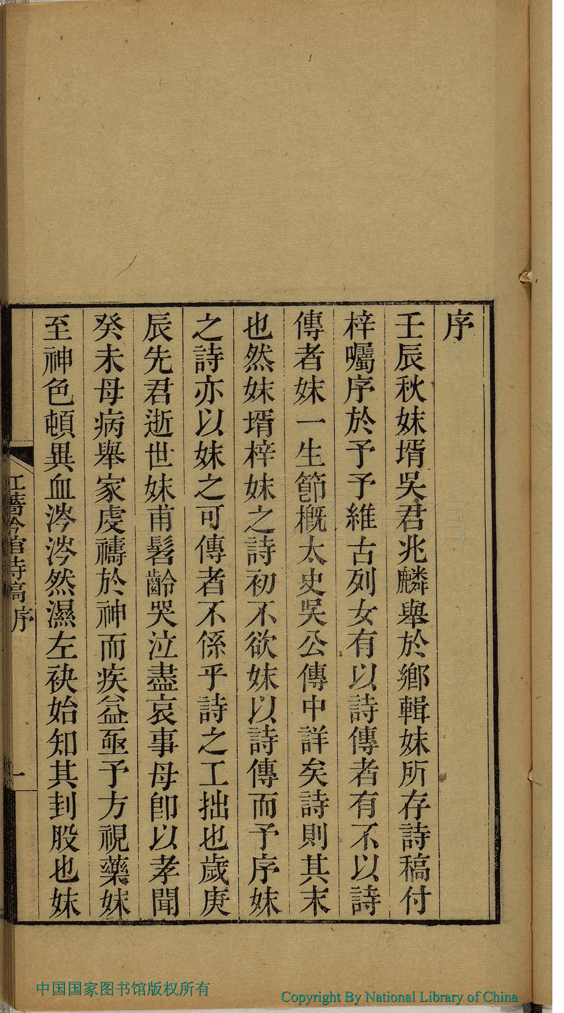 序
壬辰秋妹壻吳君兆麟舉於鄉輯妹所存詩稿付
梓囑序於予予維古列女有以詩傳者有不以詩
傳者妹一生節概太史吳公傳中詳矣詩則其末
也然妹壻梓妹之詩初不欲妹以詩傳而予序妹
之詩亦以妹之可傳者不係乎詩之工拙也歲庚
辰先君逝世妹甫髫齡哭泣盡哀事母卽以孝聞
癸未母病舉家虔禱於神而疾益亟予方視藥妹
至神色頓異血涔涔然濕左袂始知其刲股也妹
詩稿序
一
中国国家图书馆版权所有
Copyright By National Library of China